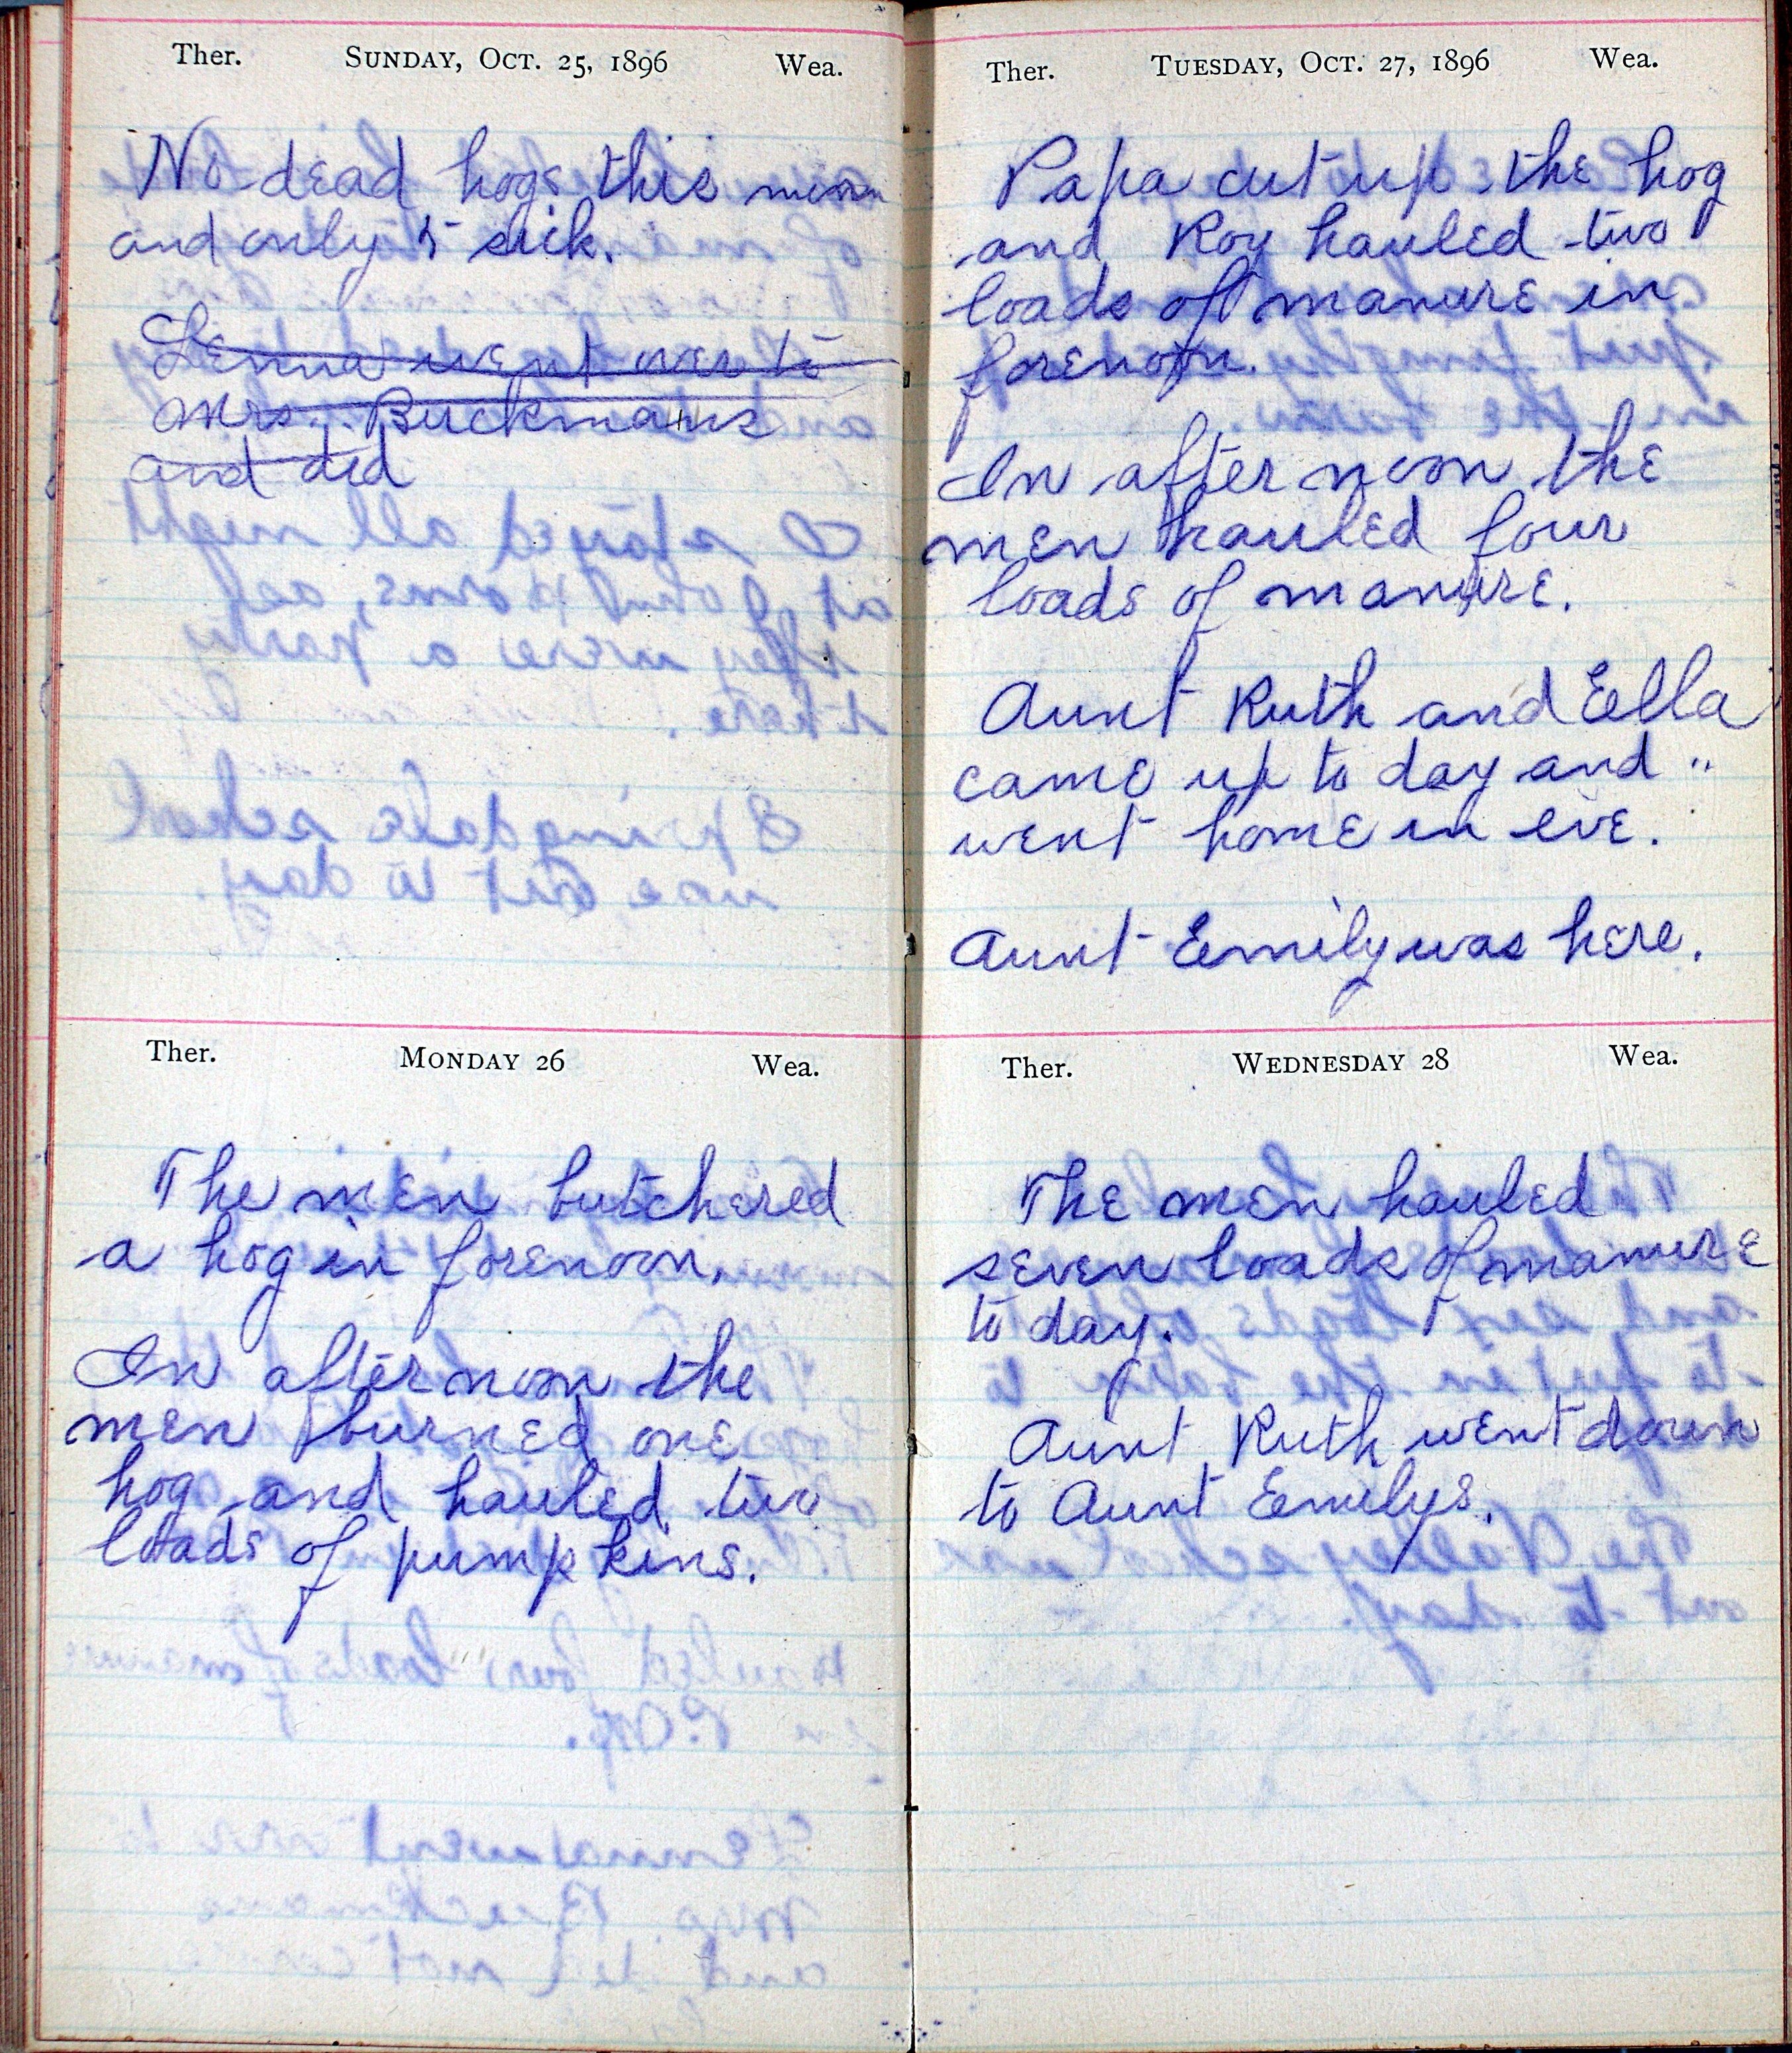 Ther. SUNDAY, OCT. 25, 1896 Wea.
No dead hogs this morn
and only 5 sick.
Lenna went over to
Mrs. Buckmans
and did
Ther. MONDAY 26 Wea.
The men butchered
a hog in forenoon.
In after noon the
men burned one
hog and hauled two
loads of pumpkins.
Ther. TUESDAY, OCT. 27, 1896 Wea.
Papa cut up the hog
and Roy hauled two
loads of manure in
forenoon.
In after noon the
men hauled four
loads of manure.
Aunt Ruth and Eella
came up to day and "
went home in eve.
Aunt Emily was here.
Ther. WEDNESDAY 28 Wea.
The men hauled
seven loads of manure
to day.
Aunt Ruth went down
to Aunt Emilys.